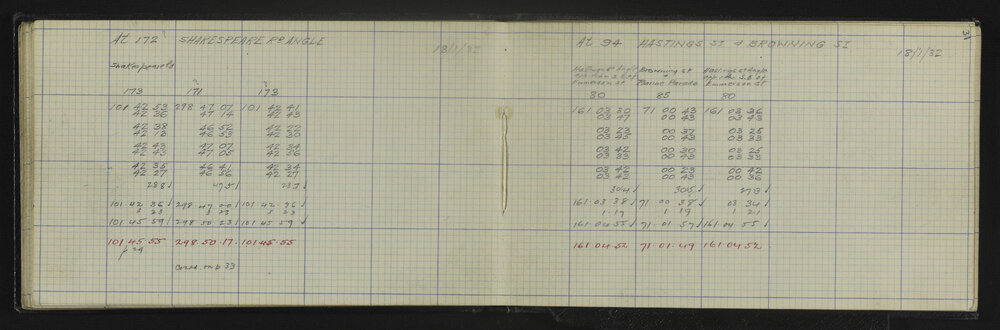 At 172 SHAKESPEARE RD ANGLE
18/1/32
Shakespeare Rd
173 171 173
101 42 53 298 47 07 101 42 41
42 36 47 14 42 43
42 38 46 52
42 18 46 53 42 30
42 43 47 07 42 34
42 43 47 05 42 36
42 35 46 41 42 34
42 27 46 36 42 27
288
101 42 36 298 47 00 101 42 36
3 23 3 23 3 23
101 45 59 298 50 23 101 45 59
101 45 55 298.50.17 101.45.55
p 29
Cont. on p 33
31
At 94 HASTINGS ST & BROWNING ST
18/1/32
Hastings St Angle Browning St Hastings St Angle
Emmerson St Marine Parade Emmerson St
80 85 80
161 03 30 71 00 43 161 03 36
03 47 00 43 03 43
03 23 00 37 03 25
03 45 00 43 03 33
03 42 00 30 03 25
03 33 00 43 03 33
03 42 00 23 00 42
03 42 00 43 00 36
304 305 273
161 03 38 71 00 38 03 34
1.19 1 19 1 21
161 04 55 71 01 57 161 04 55
161 04 52 71 01 49 161 04 52